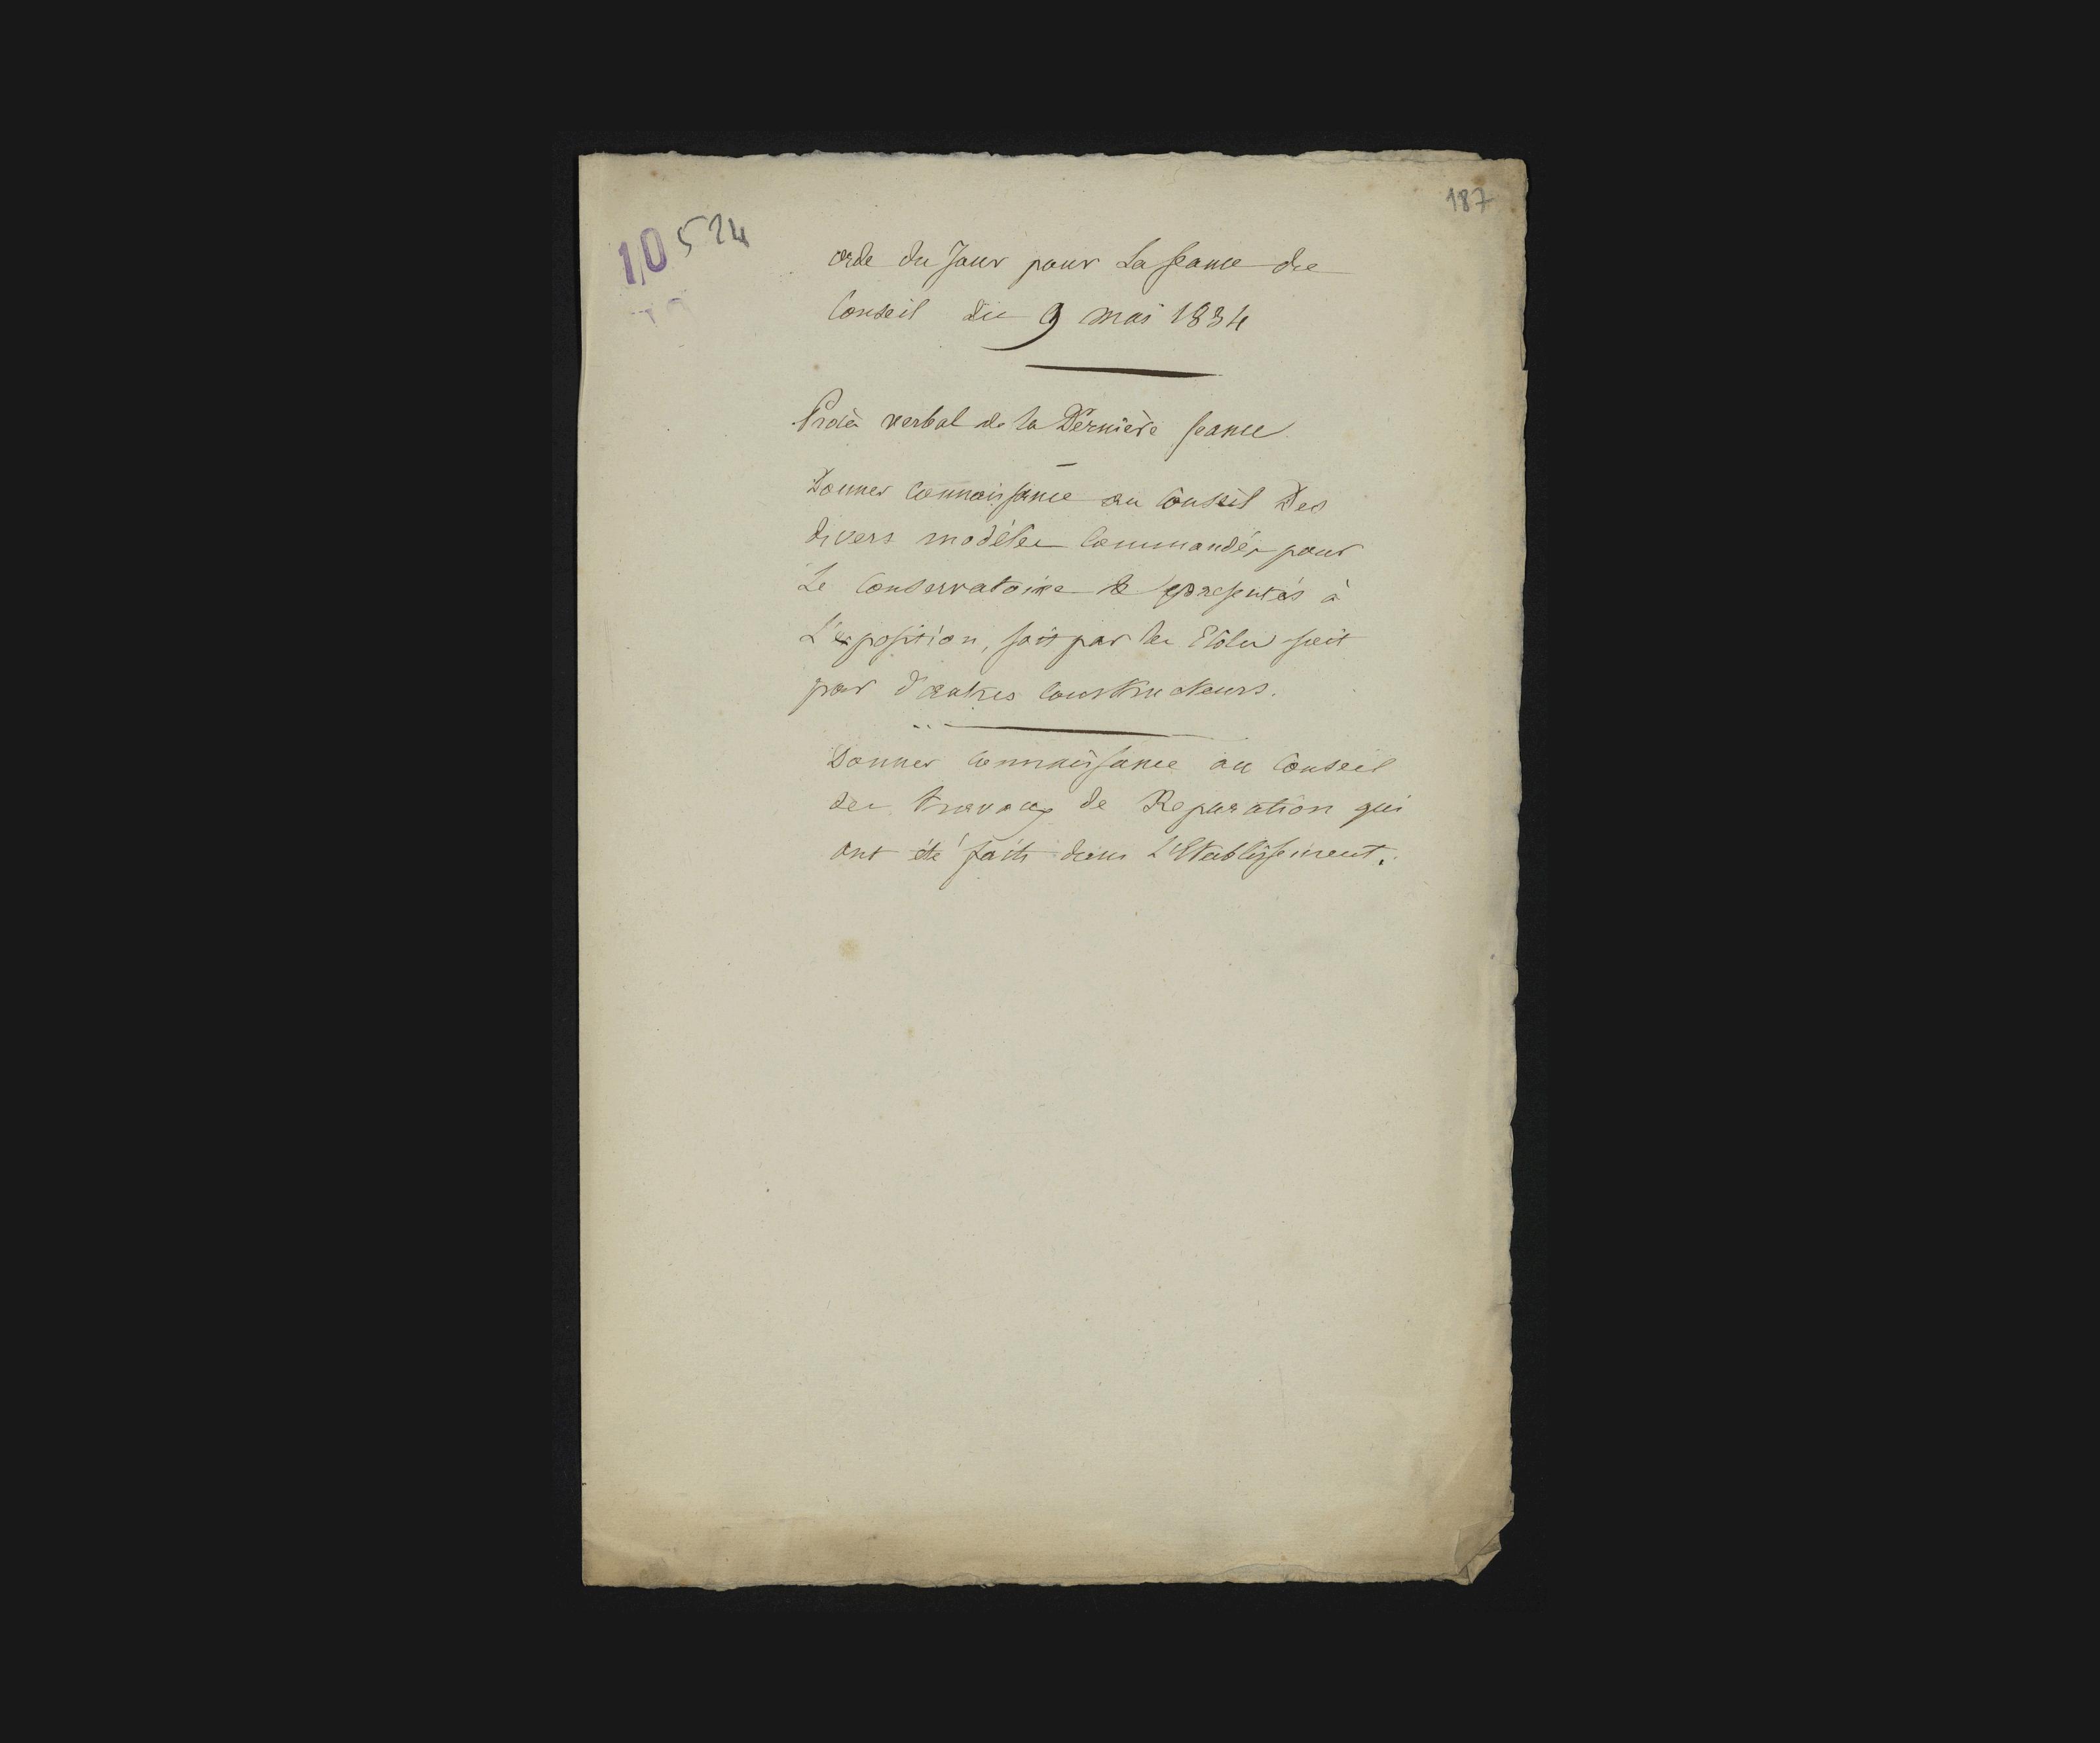 187
10 524
orde du Jour pour La seance du
Conseil du 9 mai 1834
Procès verbal de la Dernière seance
Donner connaissance au Conseil Des
divers modèles Commandés pour
Le Conservatoire & presentés à
L'exposition, soit par les Ecoles soit
par d'autres Constructeurs.
Donner connaissance au Conseil
des travaux de Reparation qui
ont été faits dans L'Etablissement.